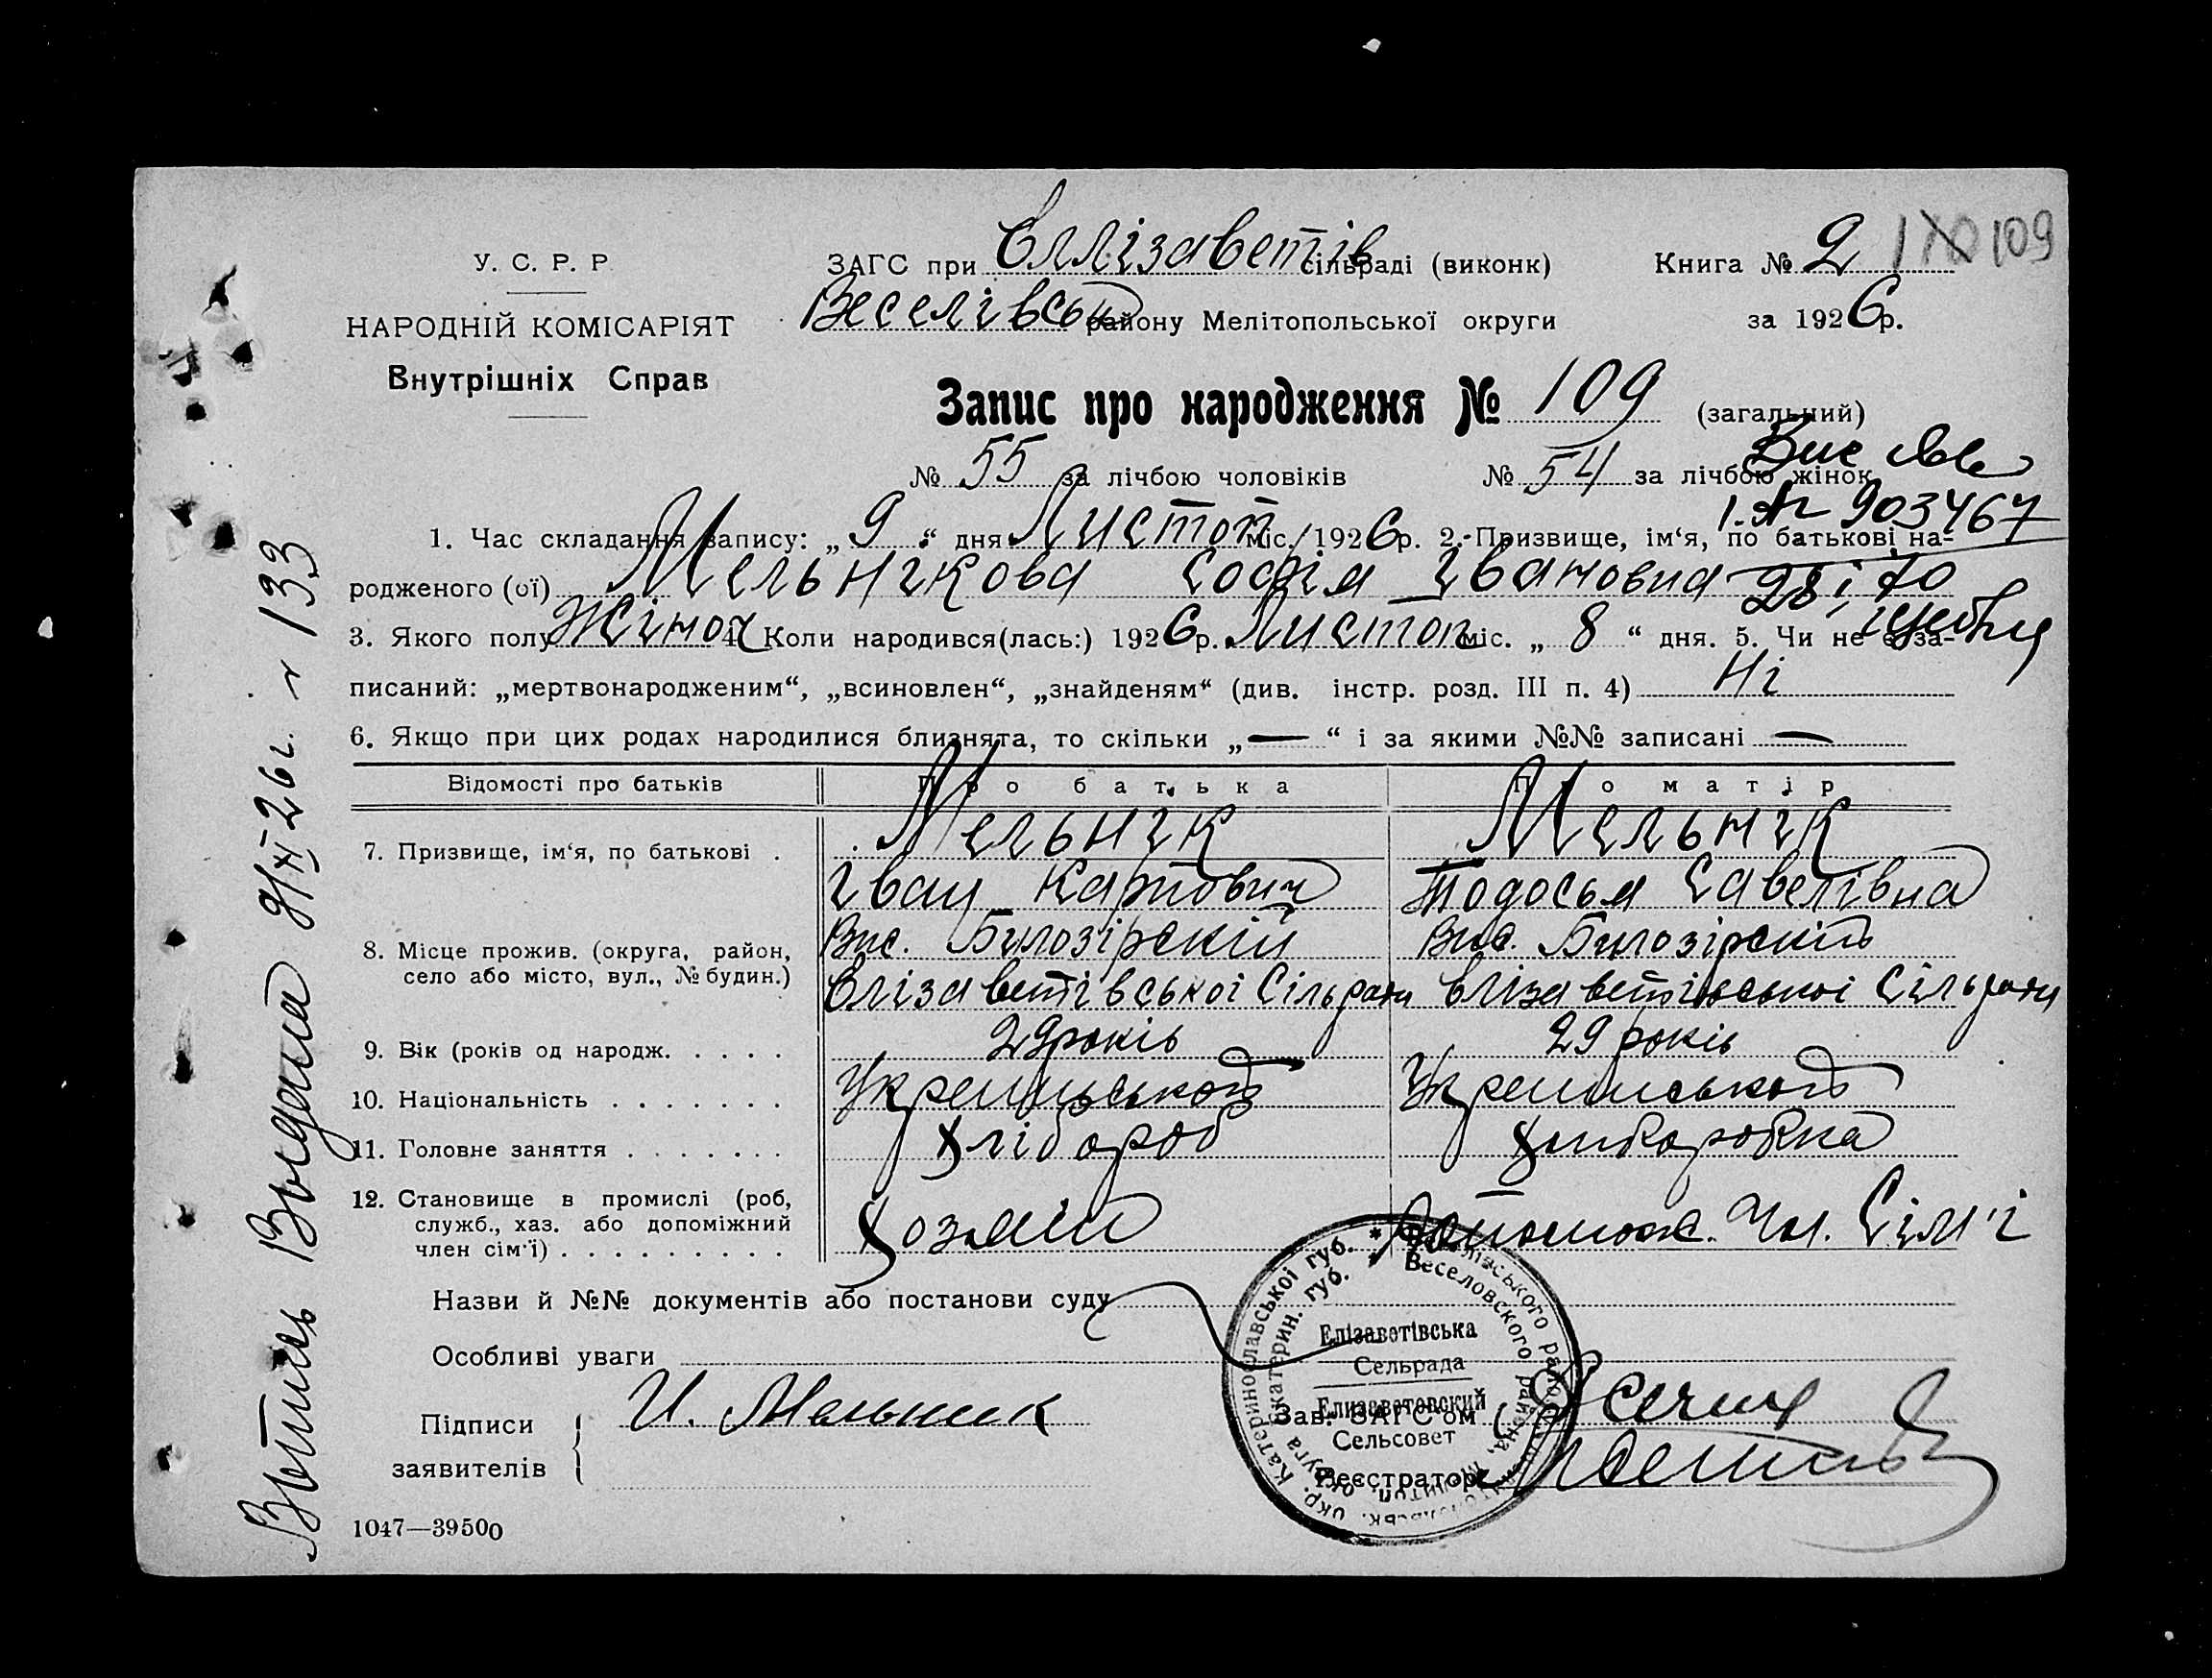 У. С. Р. Р.
НАРОДНІЙ КОМІСАРІЯТ
Внутрішніх Справ
ЗАГС при Єлізаветів сільраді (виконк)
Веселівськ району Мелітопольської округи
Книга № 2 109
за 1926р.
Запис про народження № 109 (загальний)
№ 55 за лічбою чоловіків № 54 за лічбою жінок
1. № 903467
1. Час складання запису: „9“ дня Листоп міс. 1926р. 2. Призвище, ім‘я, по батькові на-
родженого (ої) Мельникова Софія Івановна
28 і 70
3. Якого полу Жіноч 4. Коли народився(лась:) 1926р. Листоп міс. „8“ дня. 5. Чи не є за-
писаний: „мертвонародженим“, „всиновлен“, „знайденям“ (див. інстр. розд. III п. 4) Ні
6. Якщо при цих родах народилися близнята, то скільки „—“ і за якими №№ записані —
Відомості про батьків Про батька Про матір
7. Призвище, ім‘я, по батькові . Мельнік Мельнік
Іван Карпович Тодосья Савелівна
8. Місце прожив. (округа, район, Вис. Билозірскій Вис. Билозірскій
село або місто, вул., № будин.) Єлізаветівської Сільради Єлізаветівської Сільради
9. Вік (років од народж. . . . . 29 років 29 років
10. Національність . . . . . . .
11. Головне заняття . . . . . . . Хлібороб
12. Становище в промислі (роб, Хозяін Допомож. Чл. Сім'і
служб., хаз. або допоміжний
член сім‘ї) . . . . . . . . .
Назви й №№ документів або постанови суду
Особливі уваги
Підписи
заявителів
И. Мельник
Зав. ЗАГС‘ом
Реєстратор
Єлізаветівська
Сельрада
Елизаветовский
Сельсовет
Веселовского района,
1047—39500
Выпись Выдана 9/XI 26 г. № 133